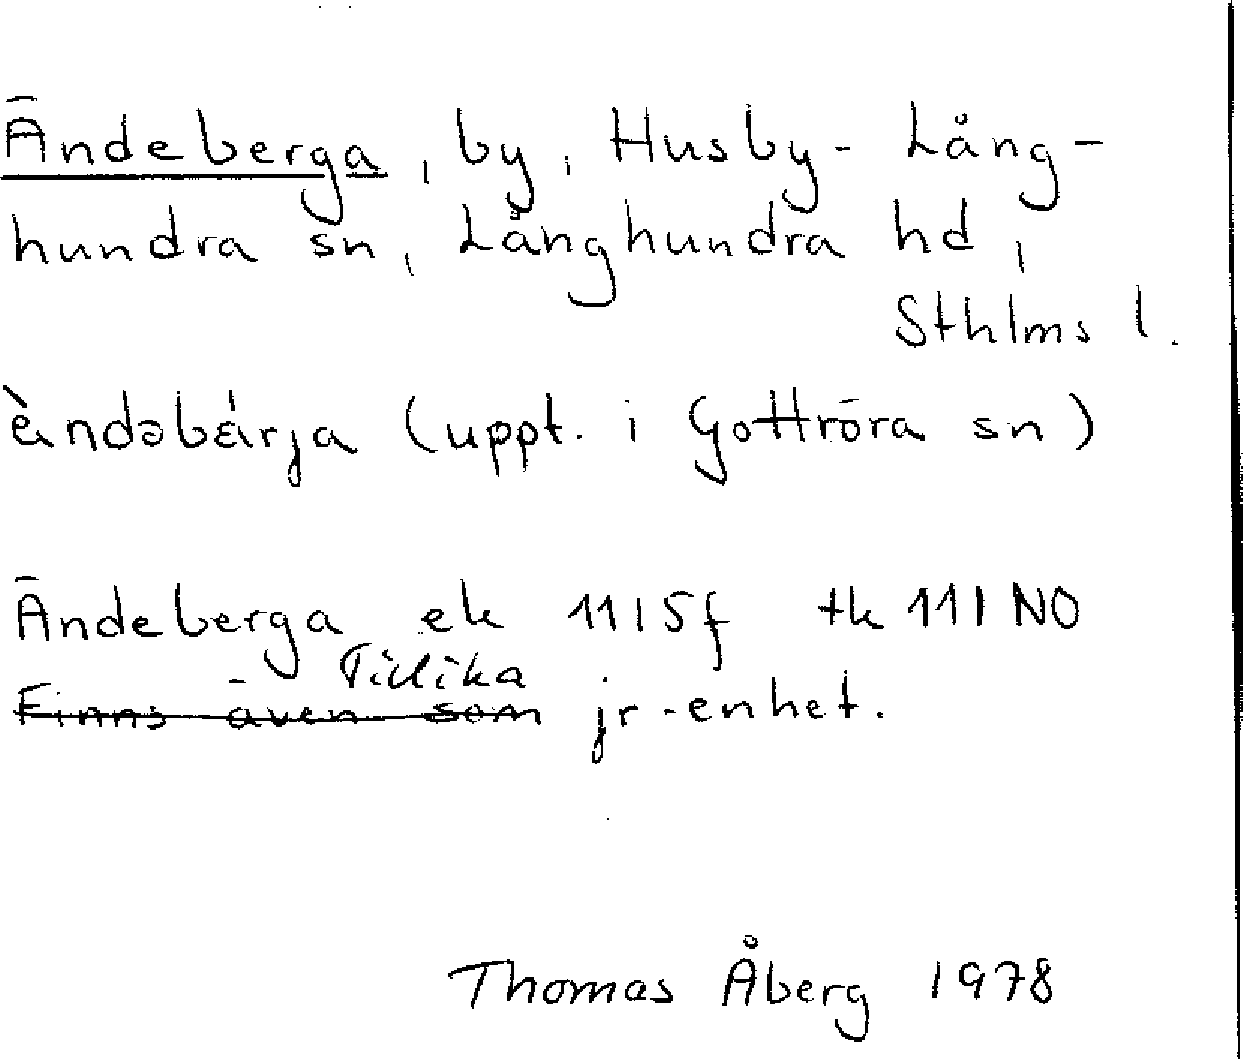 Ändeberga, by, Husby-Lång-
hundra sn, Långhundra hd,
Sthlms l.
ä̀ndəbä́rja (uppt. i Gottröra sn)
Ändeberga ek 11I5f tk 11I NO
Tillika
Finns även som jr-enhet.
Thomas Åberg 1978